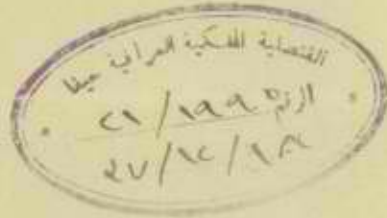 القنصلية الملكية العراقية حيفا
الرقم ١٩٩ / ٢١
٤٧/١٢/١٨